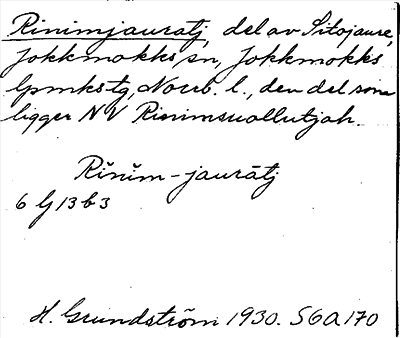 Rinimjauratj, del av Sitojaure,
Jokkmokks sn, Jokkmokks
lpmkstg, Norrb. l., den del som
ligger NV Rinimsuollutjah.
Rĭnĭm-jaurātj
6 G 13 b 3
H. Grundström 1930. S6A170